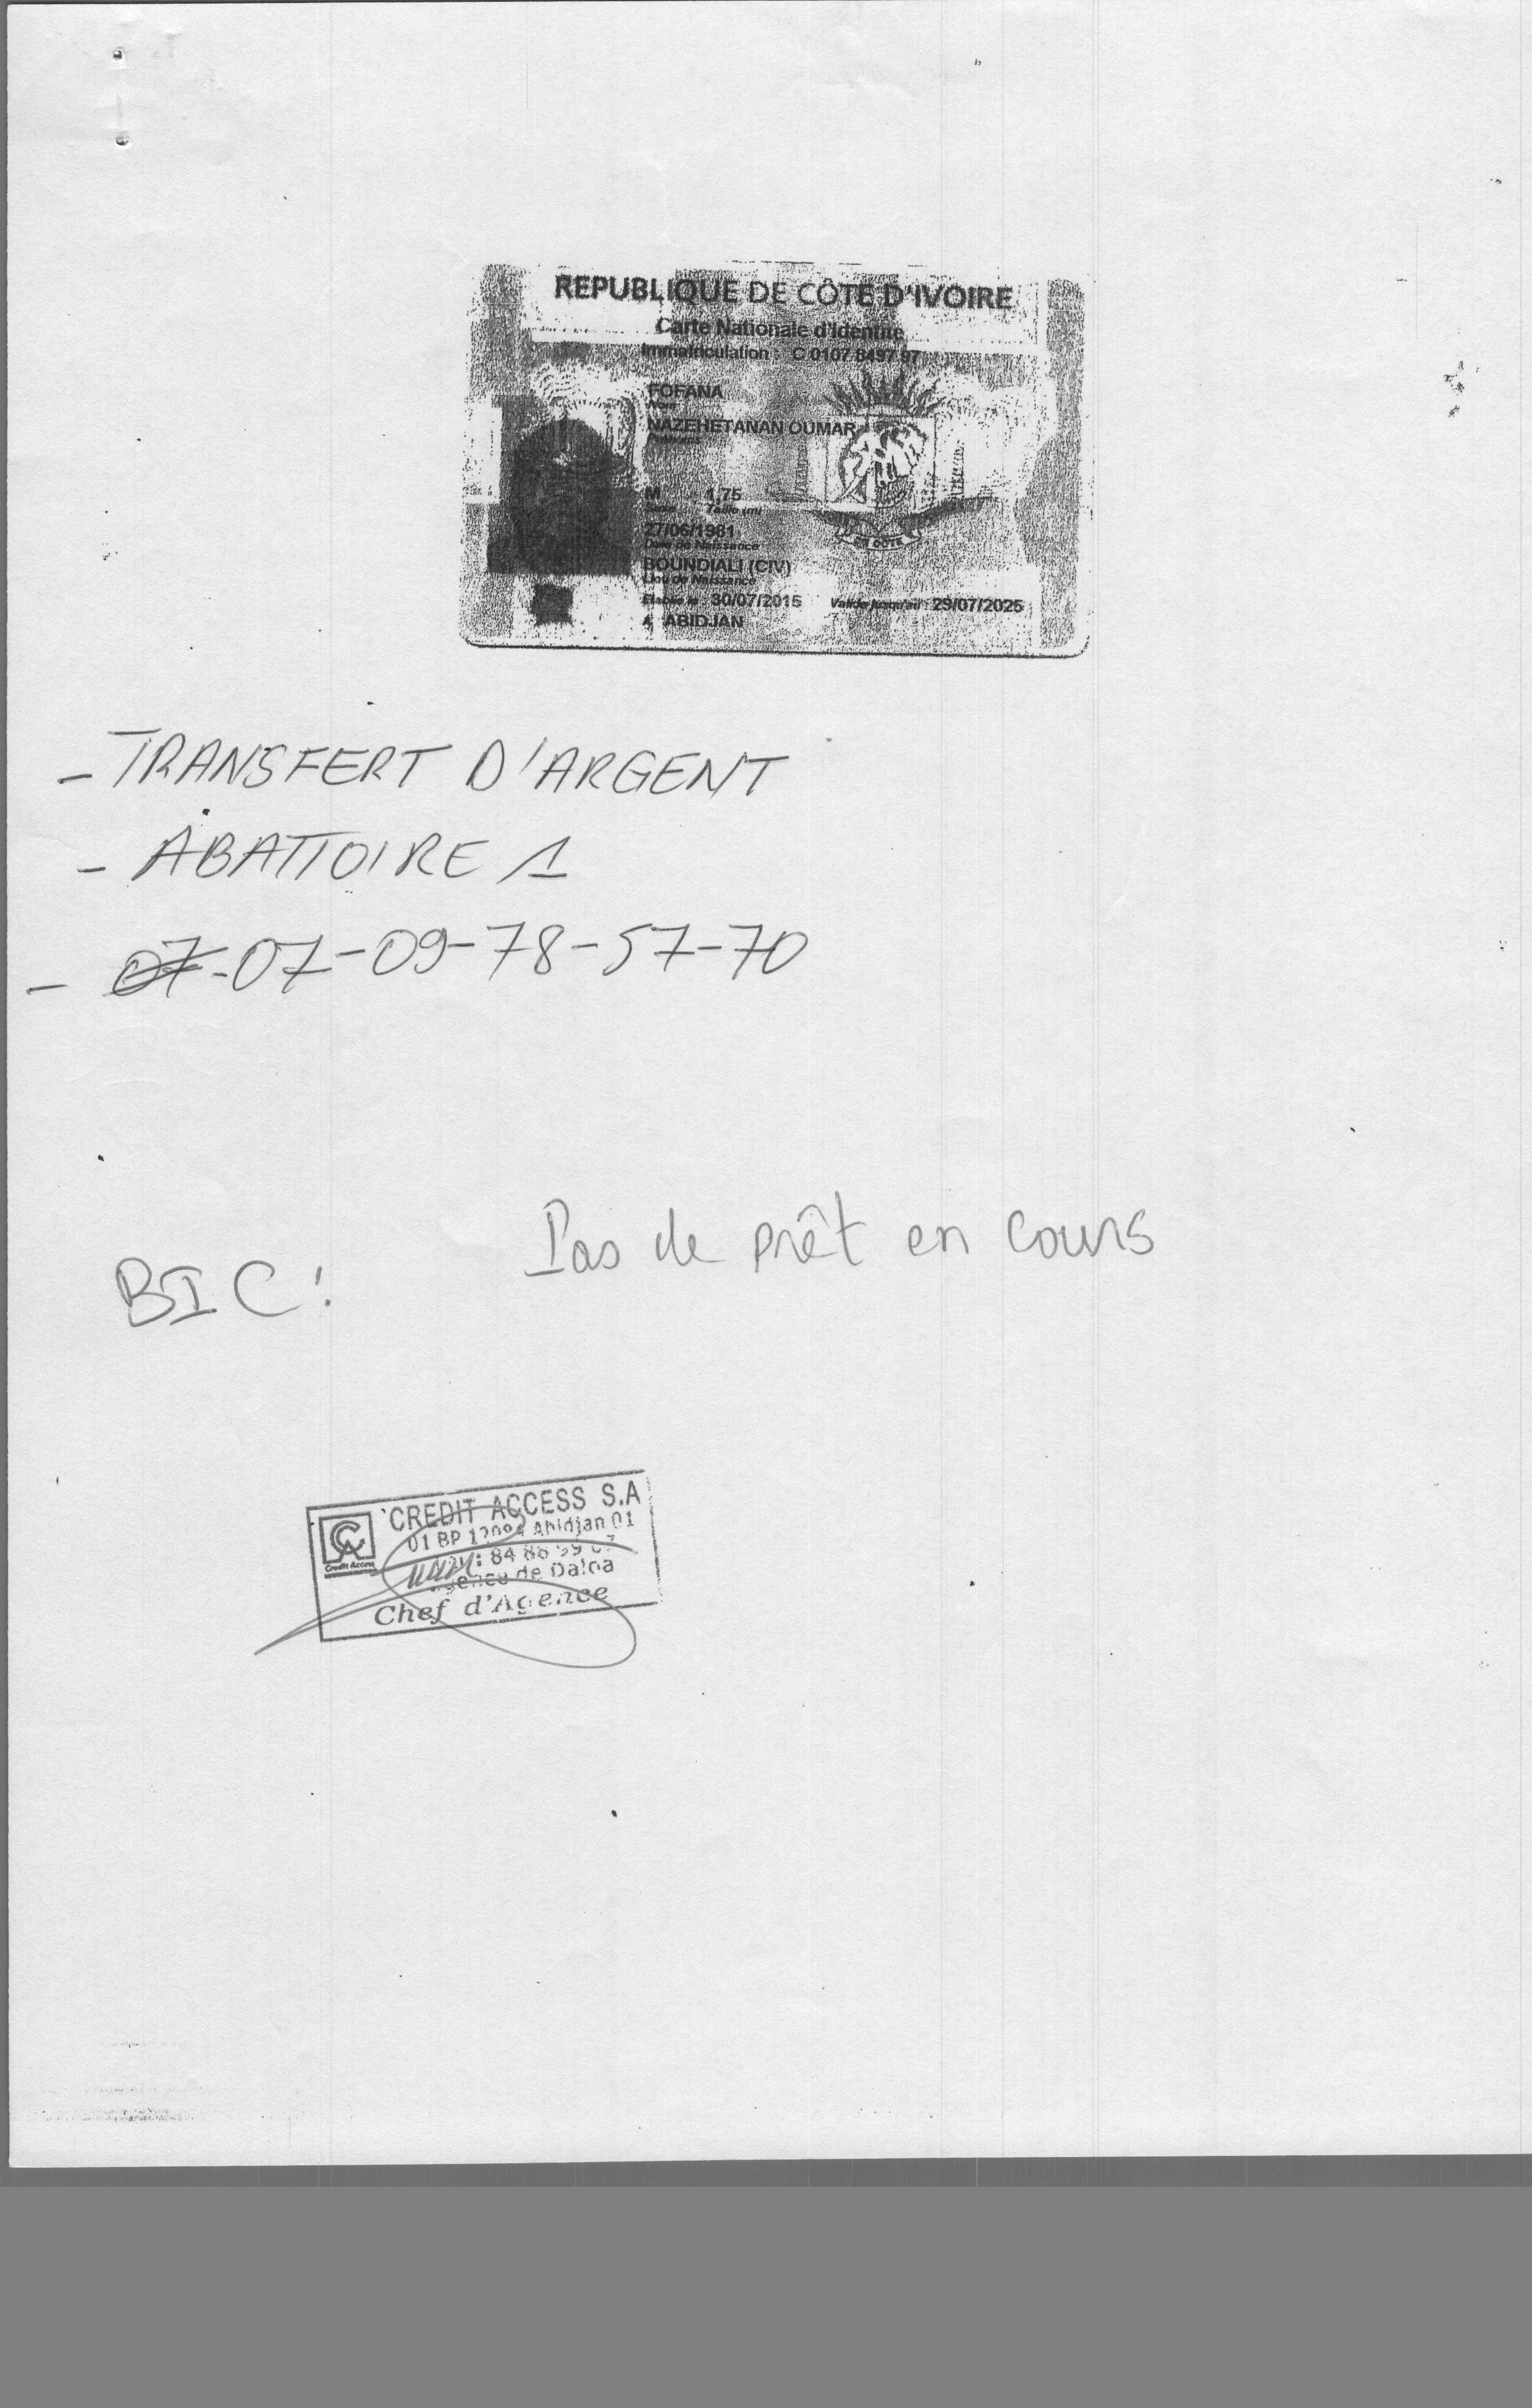 REPUBLIQUE DE CÔTE D'IVOIRE
Carte Nationale d'Identité
Immatriculation : C 0107 8497 97
FOFANA
Nom
NAZEHETANAN OUMAR
Prénoms
M 1,75
Sexe Taille (m)
27/06/1981
Date de Naissance
BOUNDIALI (CIV)
Lieu de Naissance
Etablie le : 30/07/2015 Valide jusqu'au : 29/07/2025
A ABIDJAN
- TRANSFERT D'ARGENT
- ABATTOIRE 1
- 07-07-09-78-57-70
Pas de prêt en cours
BIC :
CREDIT ACCESS S.A
01 BP Abidjan 01
Credit Access
: 84 88
Agence de Daloa
Chef d'Agence